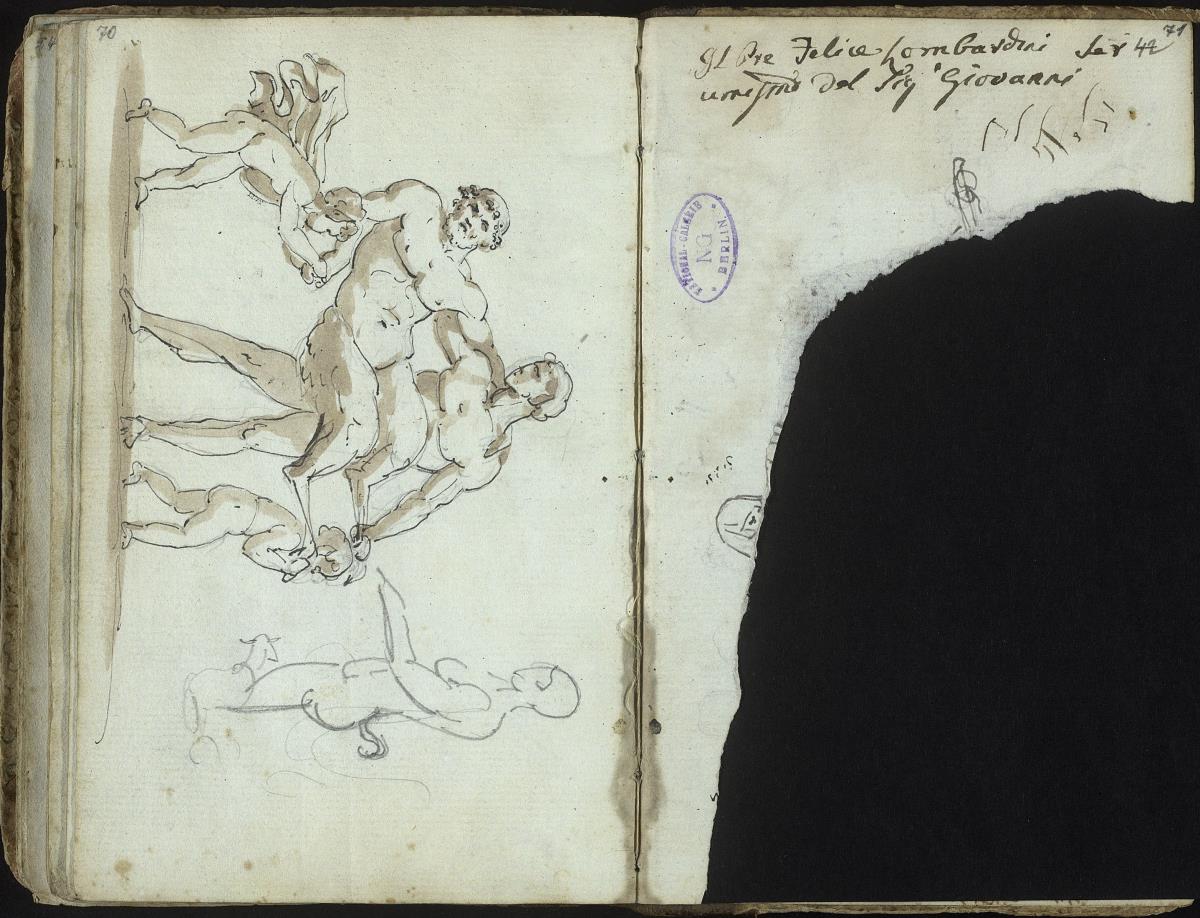 54
70
71
Il Pre Felice Lombardini Ser 42
del Sig Giovanni
NATIONAL-GALERIE
NG
BERLIN